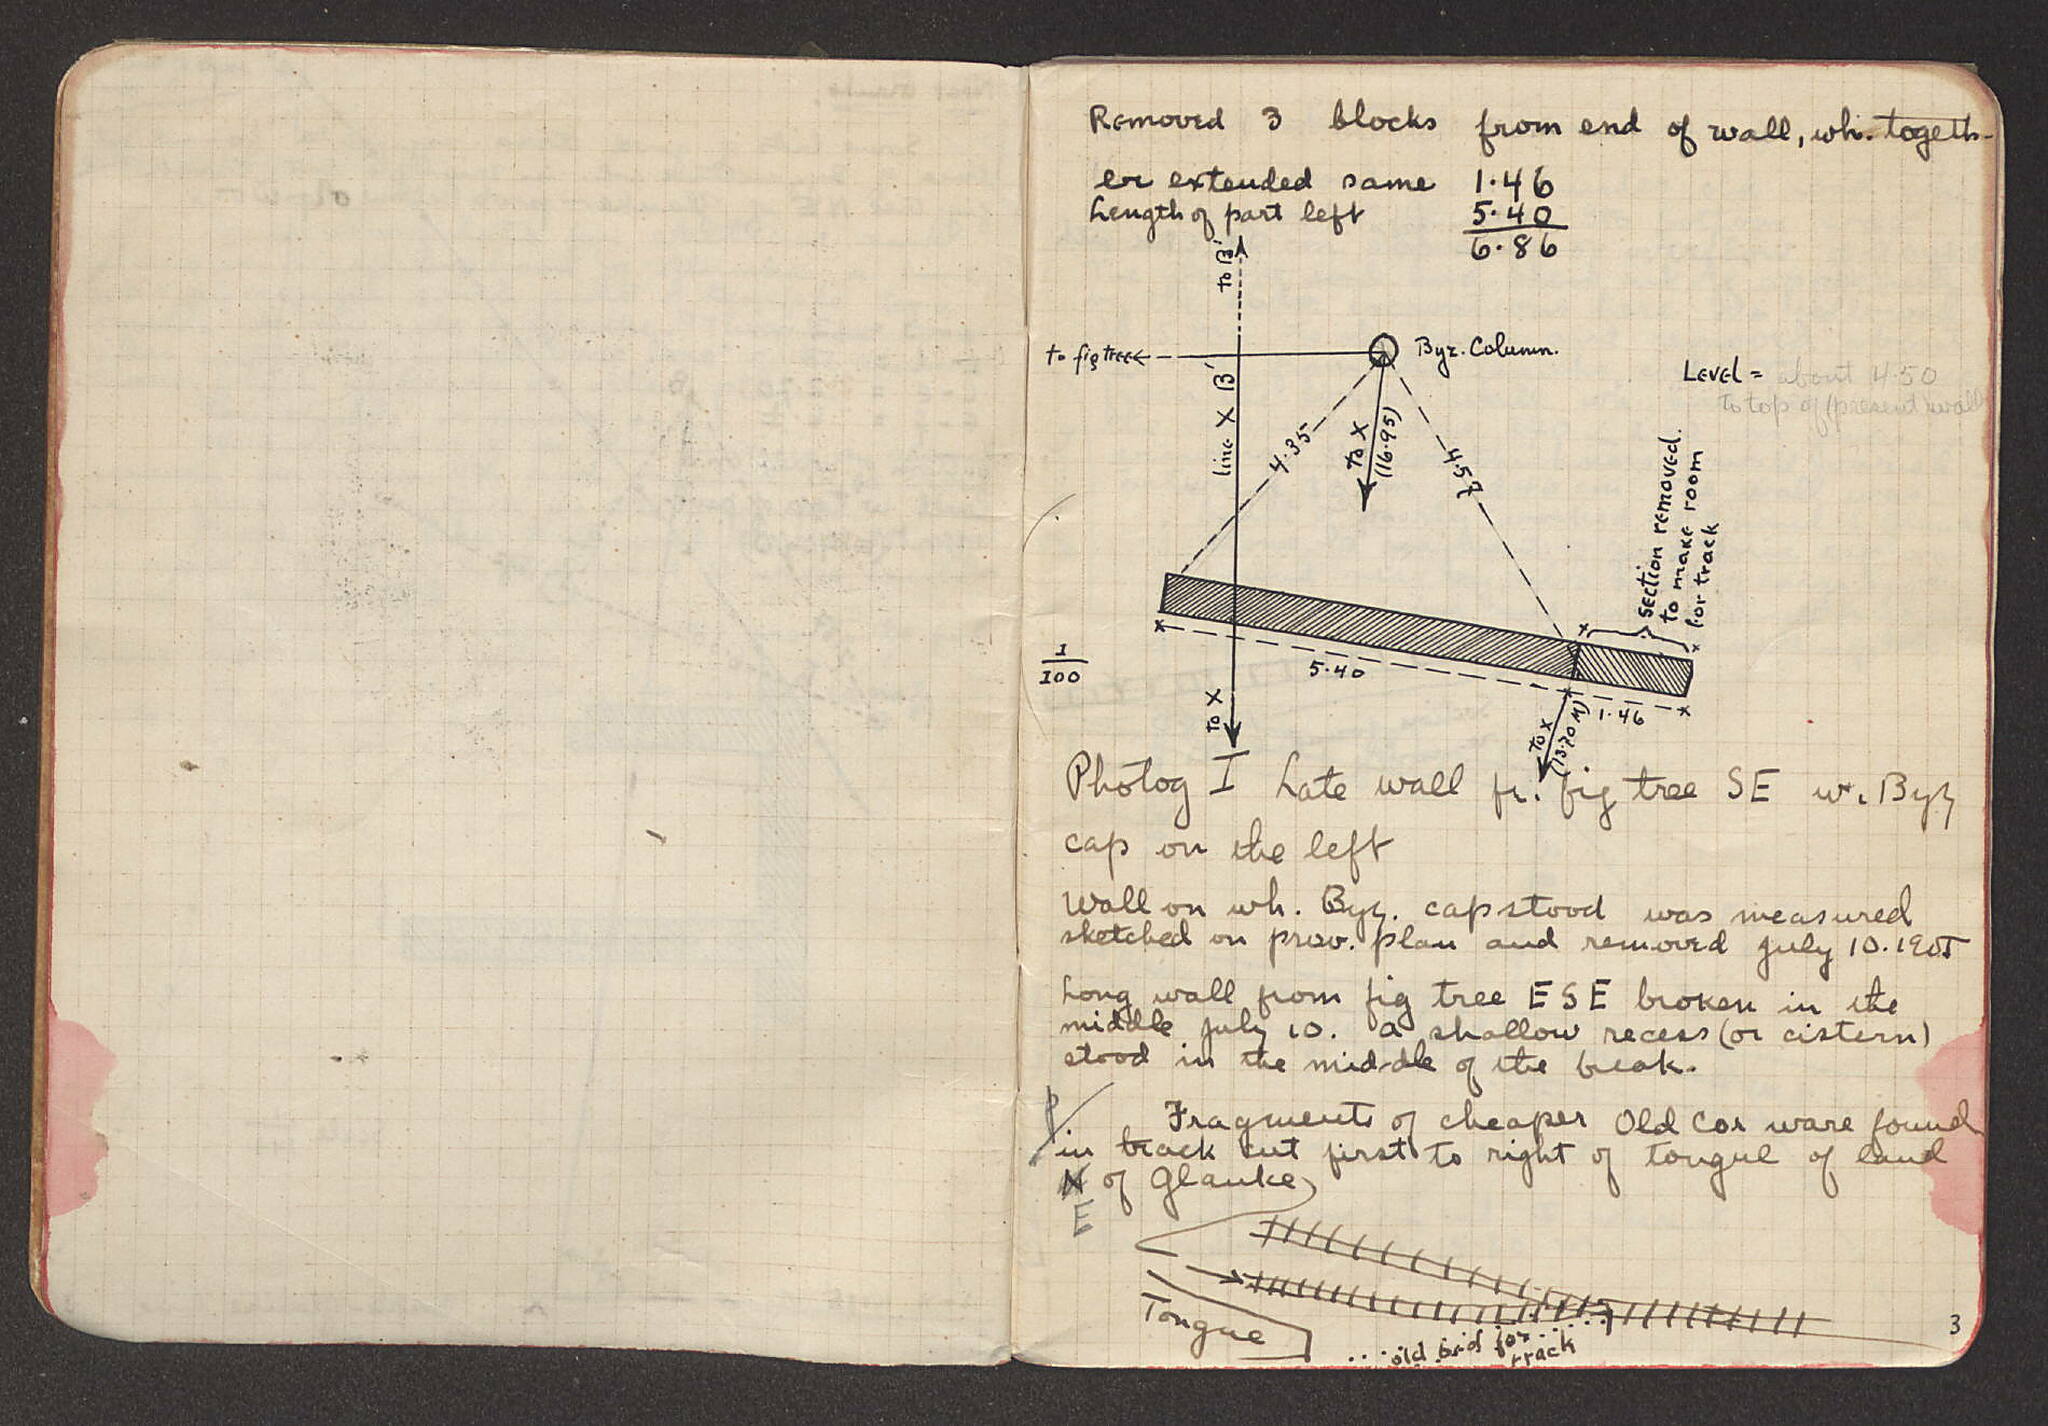 Removed 3 blocks from end of wall, wh. togeth-
er extended same 1.46
Length of part left 5.40
6.86
to B'
to fig tree
Byz. Column.
line X B'
Level = about 4.50
to top of (present) wall
4.35
to X
(16.95)
4.57
section removed
to make room
for track
1
100
5.40
1.46
to X
to X
(13.70 M)
Photog I Late wall fr. fig tree SE w. Byz
cap on the left
Wall on wh. Byz. cap stood was measured
sketched on prov. plan and removed July 10. 1905
Long wall from fig tree ESE broken in the
middle July 10. A shallow recess (or cistern)
stood in the mid-dle of the break.
P
Fragments of cheaper Old Cor ware found
in track cut first to right of tongue of land
N of Glauke
E
Tongue
old bed for
track
3